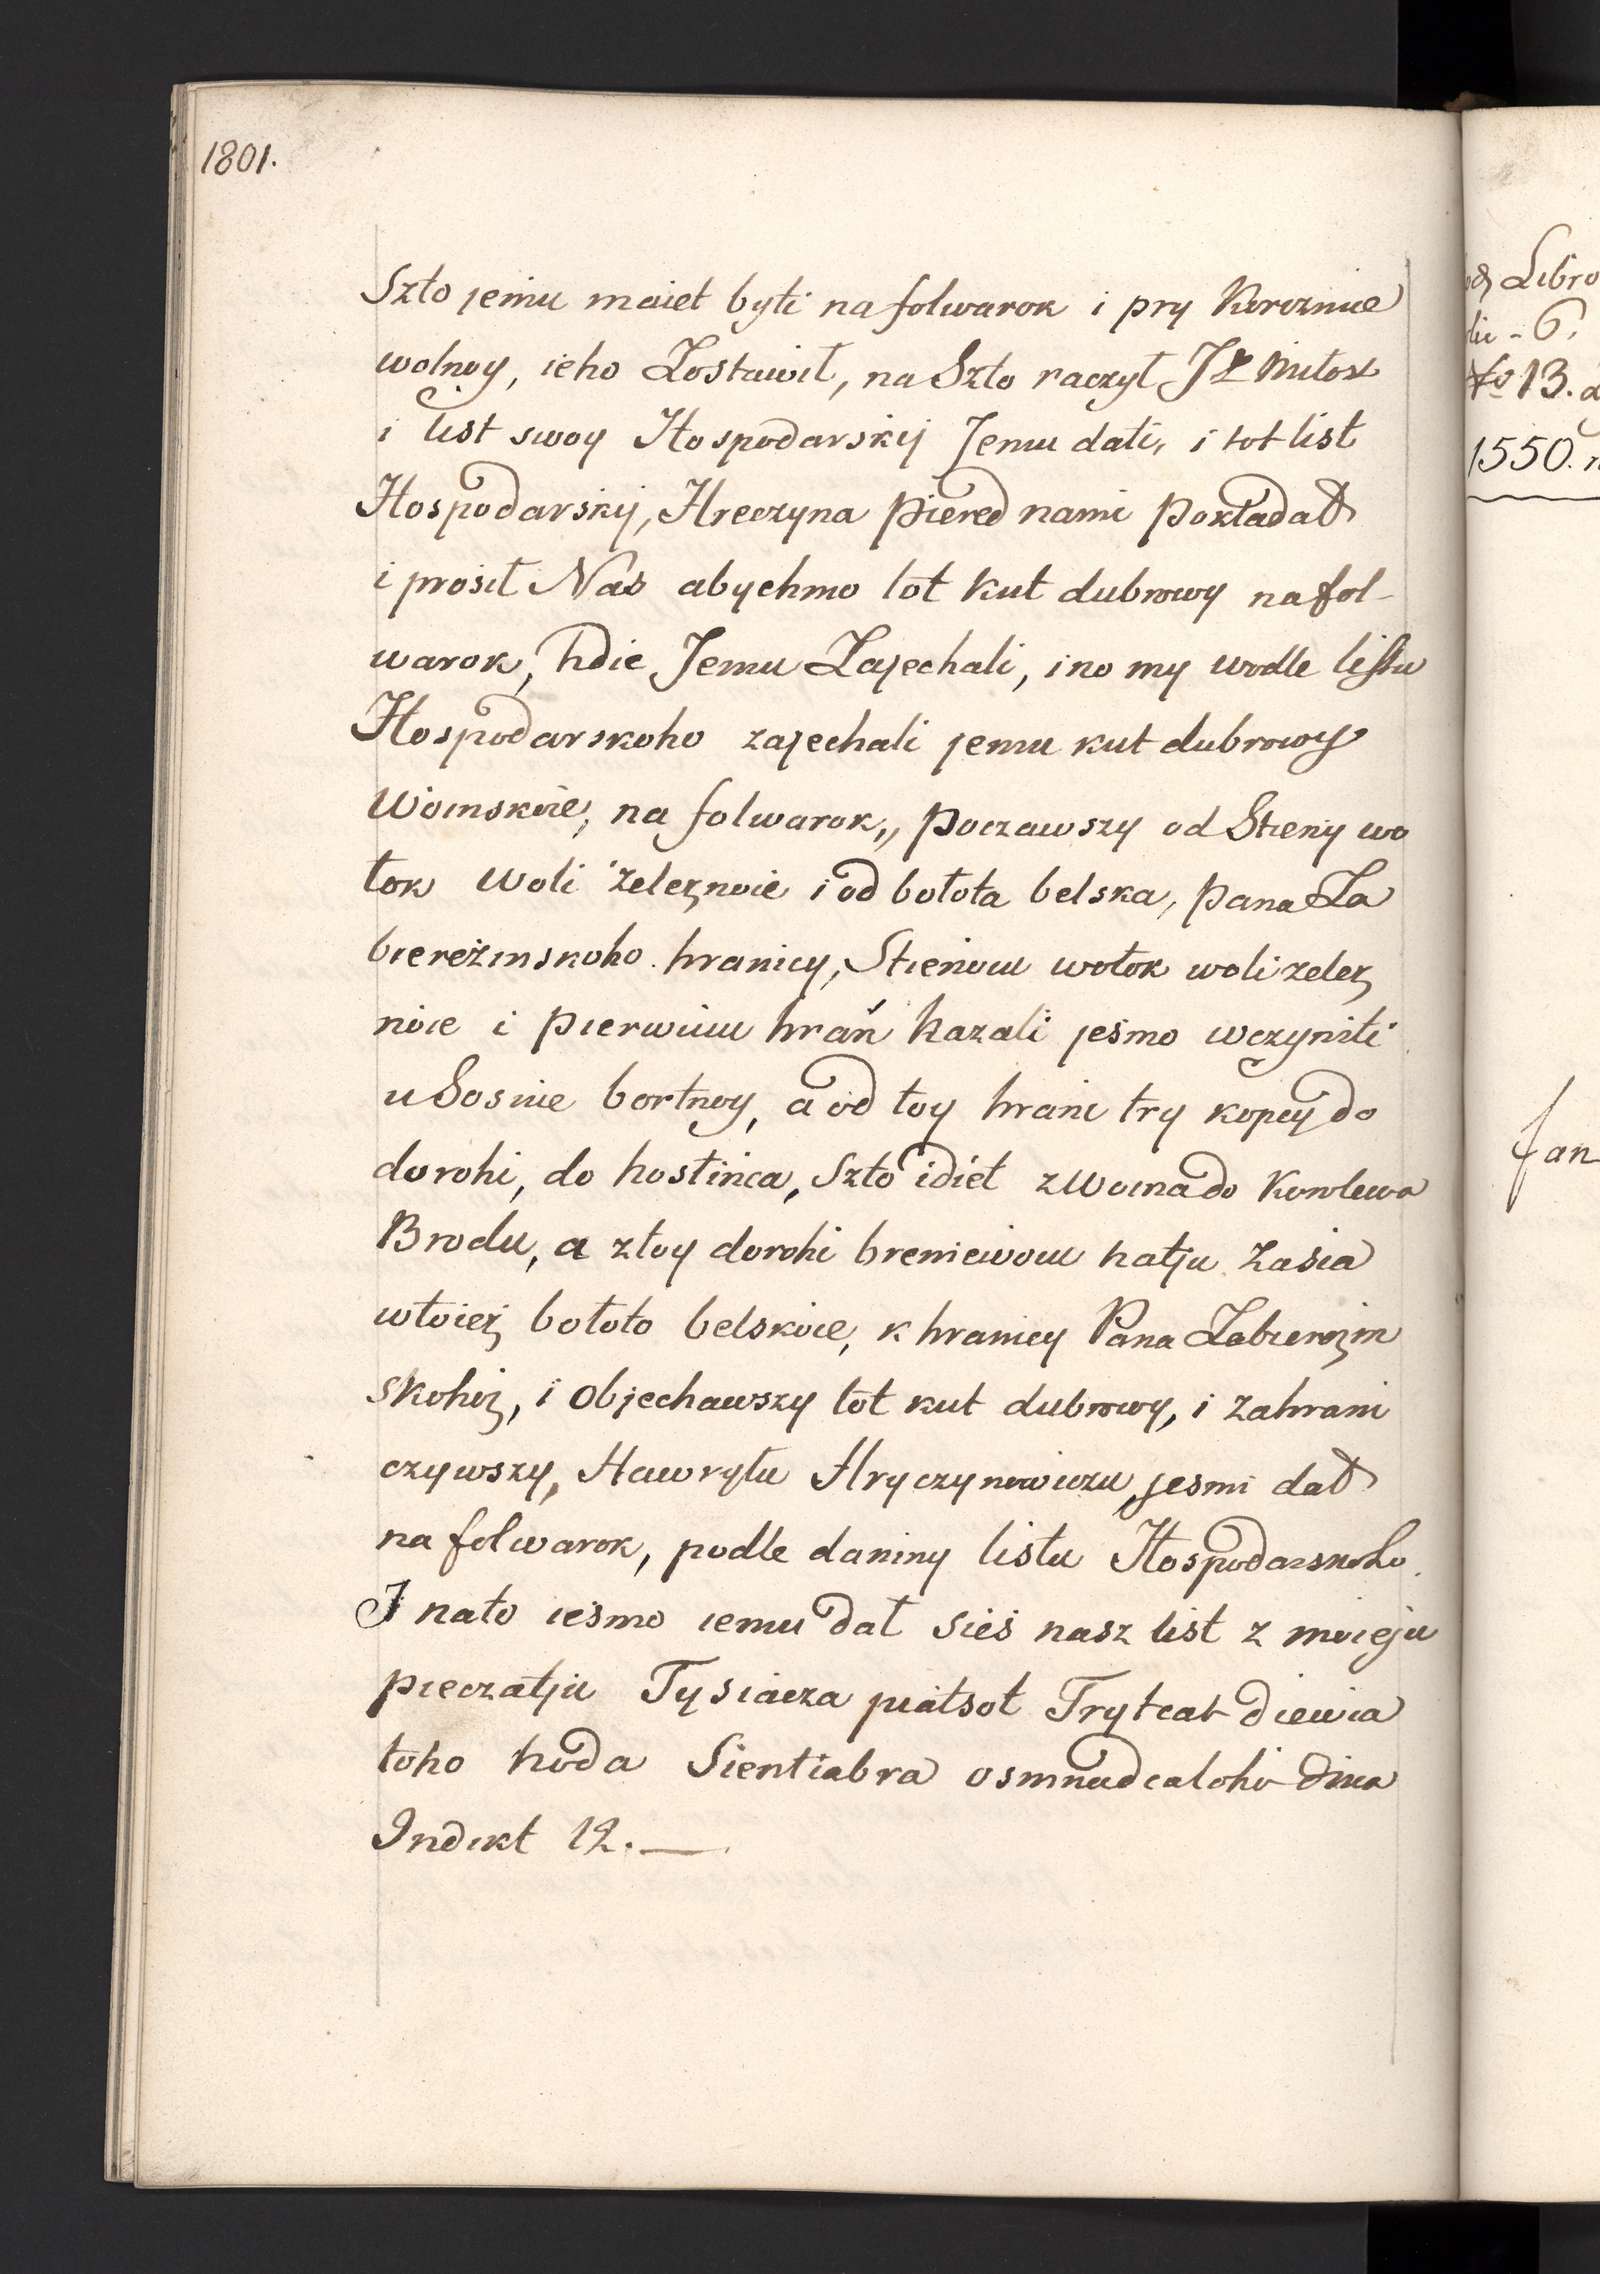 1801.
Szto jemu maiet byti na folwarok i pry Korcznuie
wolnoy, ieho Zostawił, na Szto raczył Jł Miłost
i list swoy Hospodarskij Jemu dati, i tot list
Hospodarskij, Hreczyna Piered nami Pokładał
i prosił Nas abychmo tot Kut dubrowy na fol-
warok, hdie Jemu Zajechali, ino my wodle listu
Hospodarskoho zajechali jemu kut dubrowy
Woinskoie, na folwarok,, Poczawszy od Stieny wo
łok Woli Żeleznoie i od bołota belska, Pana Za
bereżinskoho hranicy, Stienoiu wołok woli zelez
noie i Pierwuiu hrań kazali jeśmo wczyniti
u Sosnie bortnoy, a od toy hrani try kopcy do
dorohi, do hostińca, Szto idiet z Woina do Korolewa
Brodu, a z toy dorohi breniewoiu hatju Zasia
wtoież bołoto belskoie, k hranicy Pana Zabierezin
skohoż, i Objechawszy tot kut dubrowy, i Zahrani
czywszy, Hawryłu Hryczynowiczu jesmi dał
na folwarok, podle daniny listu Hospodarskoho.
I nato iesmo iemu dał sieś nasz list z moieju
pieczatju Tysiacza piatsot Trytcat diewia
toho hoda Sientiabra osmnadcatoho dnia
Indikt 12. —
Libro
6.
No 13.
1550.
fan